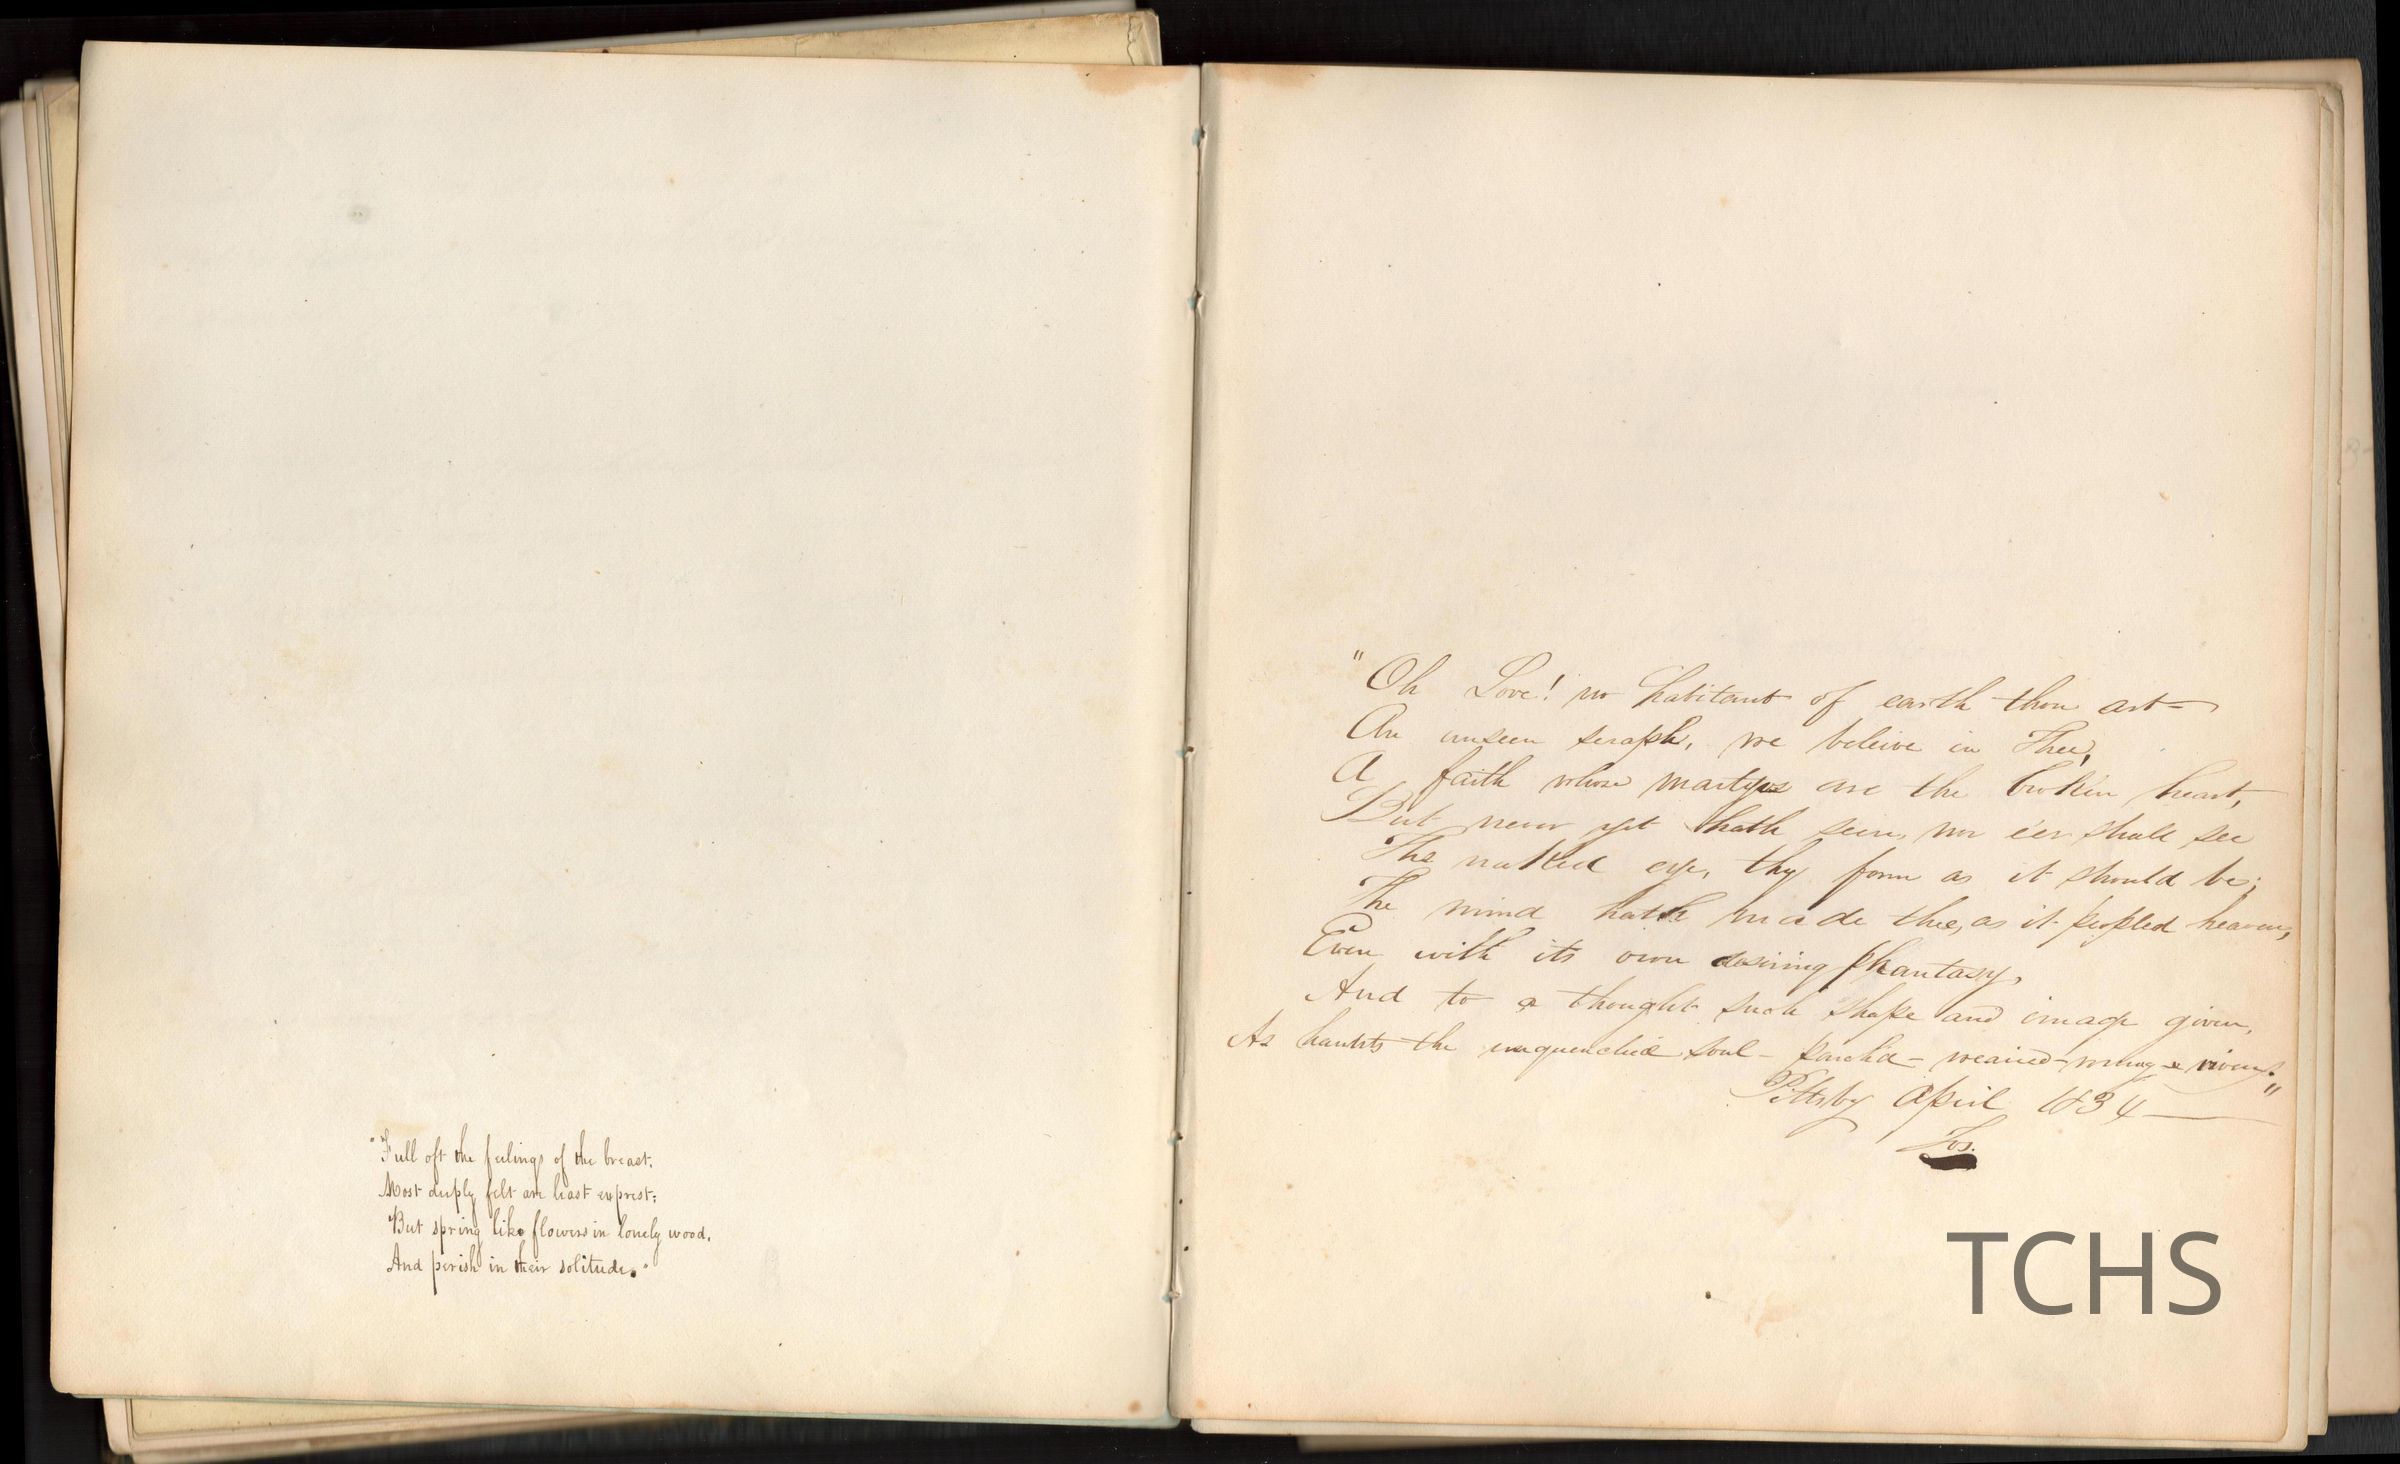 "Full oft the feelings of the breast,
Most deeply felt are least exprest;
But spring like flowers in lonely wood,
And perish in their solitude."
"Oh Love! no habitant of earth thou art—
An unseen seraph, we beleive in Thee,
A faith whose martyrs are the broken heart,
But never yet hath seen, nor e'er shall see
The naked eye, thy form as it should be;
The mind hath made thee, as it peopled heaven,
Even with its own desiring phantasy,
And to a thought such shape and image given,
As haunts the unquenched soul - parch'd - wearied - wrung - & riven."
Pittsby April 1834 —
Jos.
TCHS